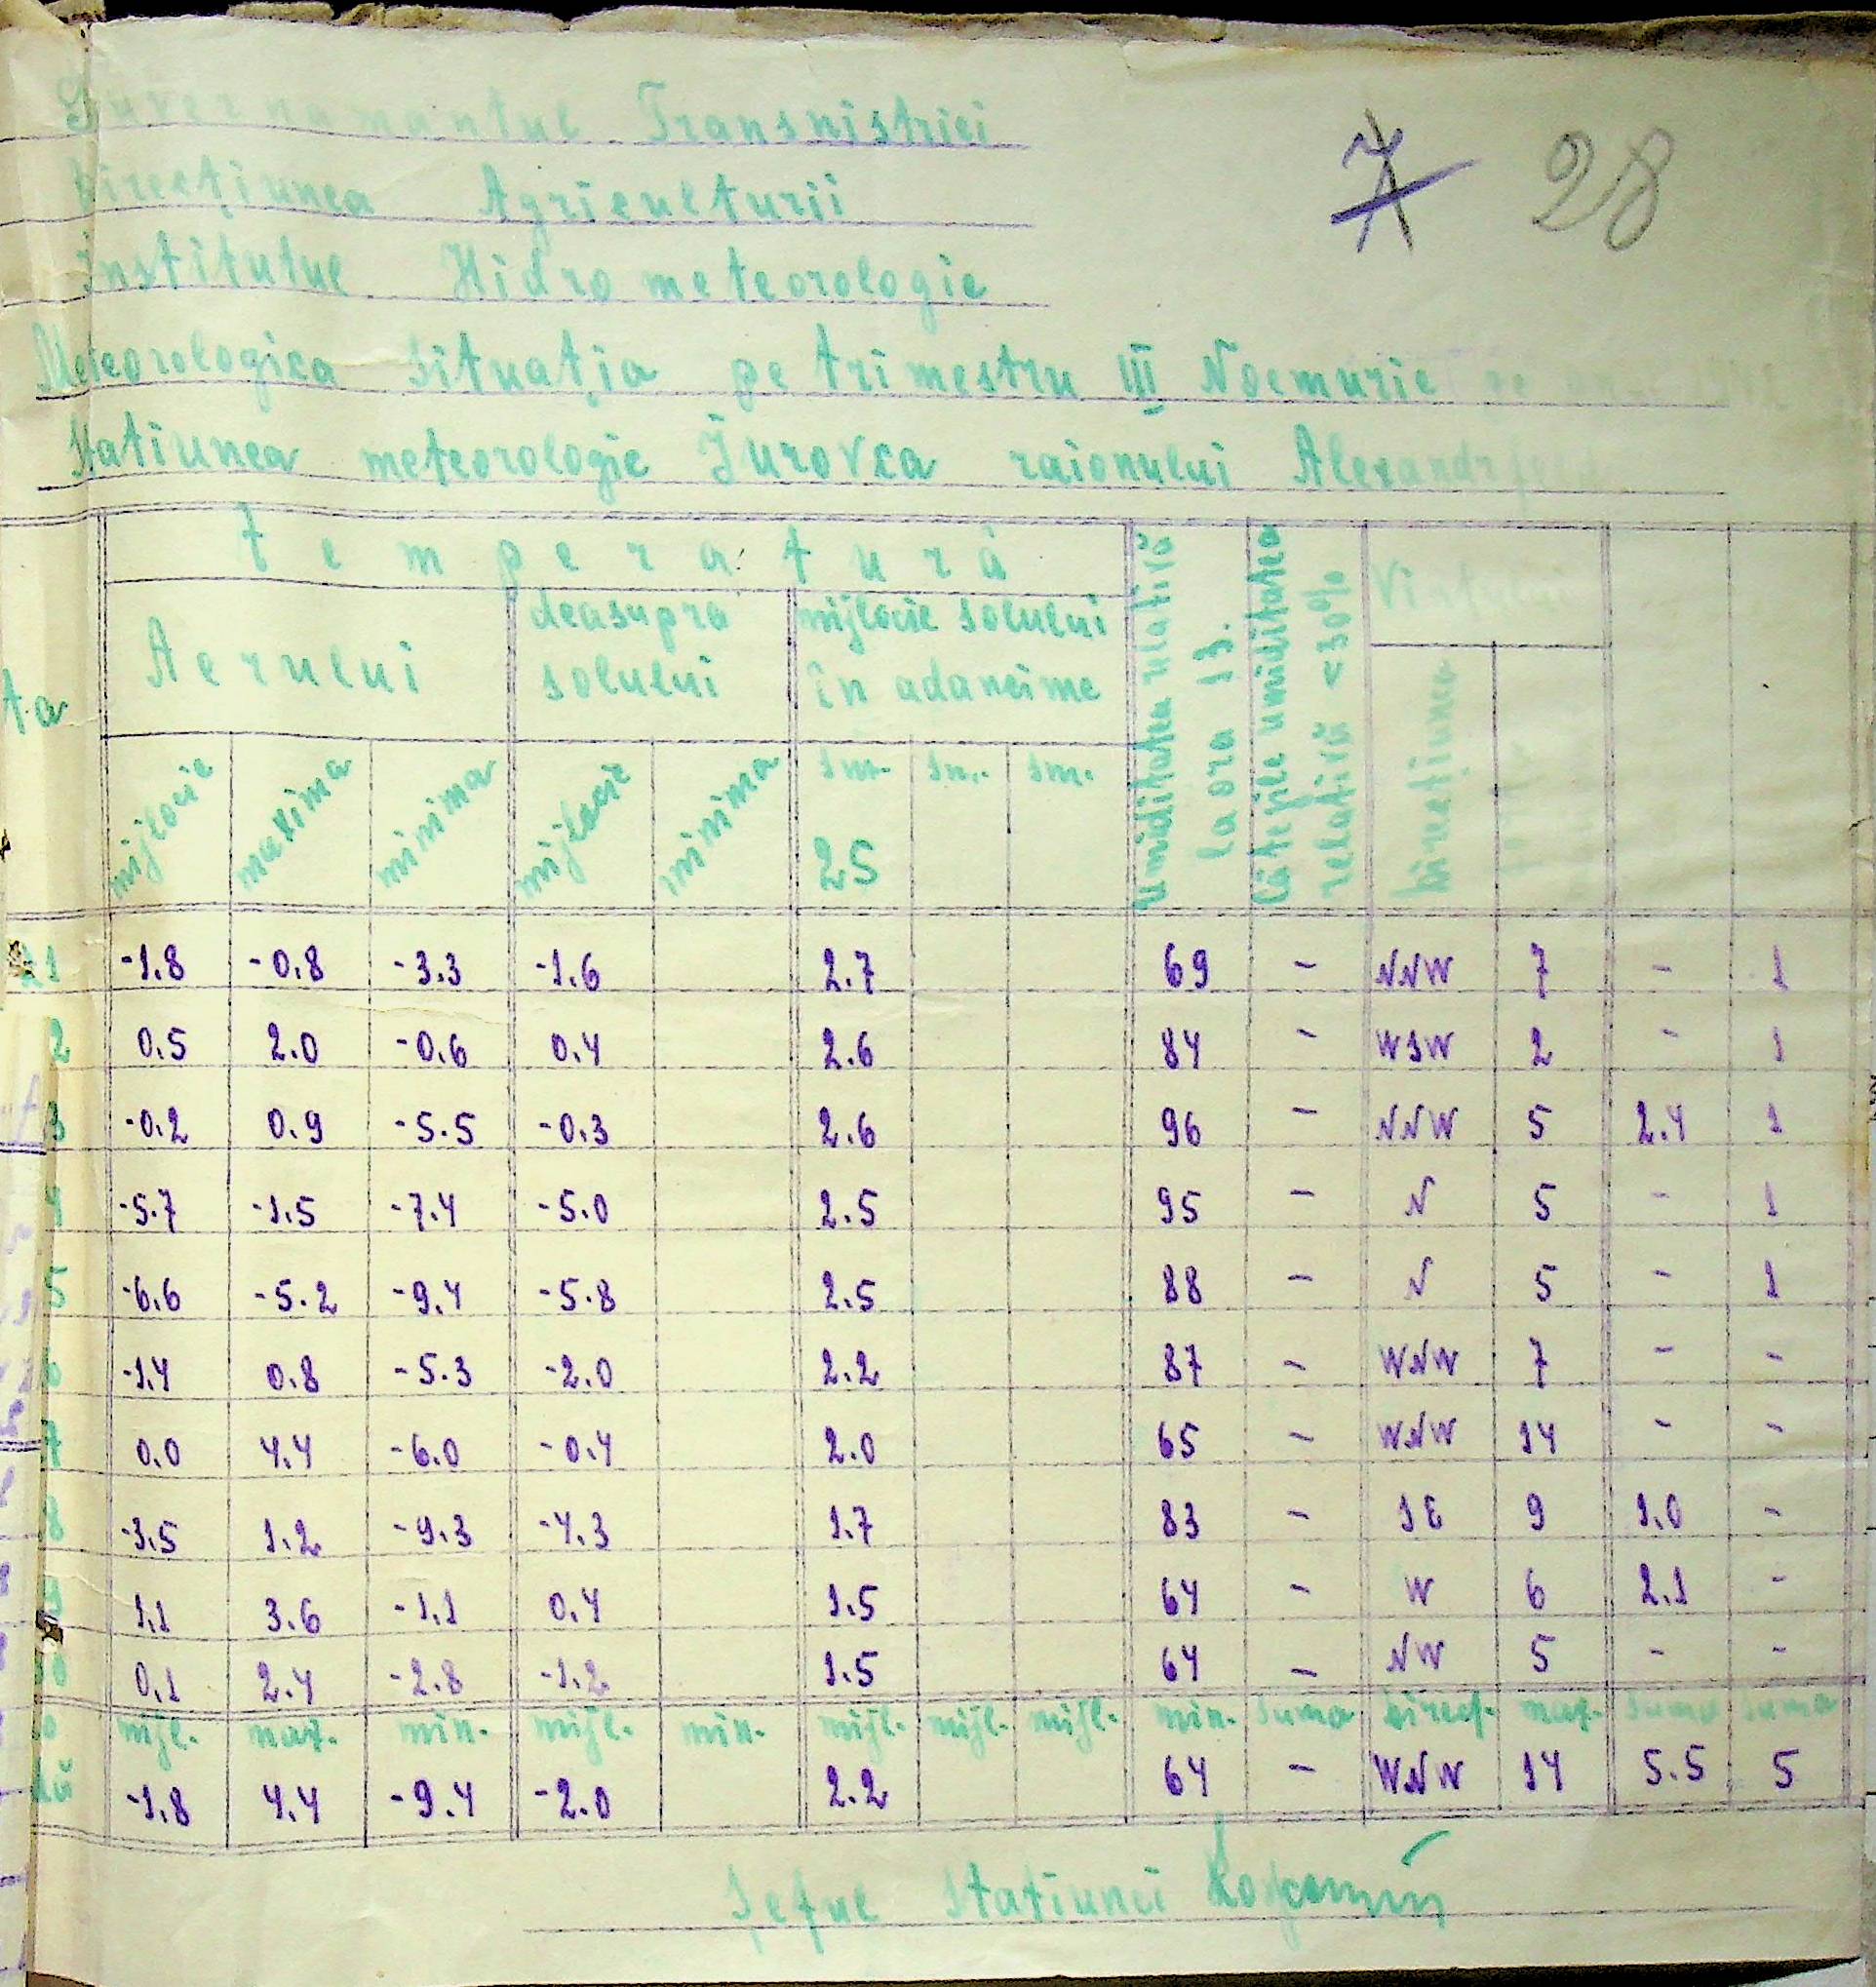 Guvernamantul Transnistriei
7 28
Direcțiunea Agriculturii
Institutul Hidro meteorologic
Meteorologica Situația pe trimestru III Noemvrie
Statiunea meteorologic Jurovca raionului Alexandrfeld
ta
Temperatură
Aerului
deasupra solului
mijlocie solului în adancime
Umiditatea relativă la ora 13.
Câte zile umiditatea relativă <30%
Direcțiunea
mijlocie maxima minima mijlocie minima sm. sm. sm.
25
21 -1.8 -0.8 -3.3 -1.6 2.7 69 - NNW 7 - 1
2 0.5 2.0 -0.6 0.4 2.6 84 - WSW 2 - 1
3 -0.2 0.9 -5.5 -0.3 2.6 96 - NNW 5 2.4 1
4 -5.7 -1.5 -7.4 -5.0 2.5 95 - N 5 - 1
5 -6.6 -5.2 -9.4 -5.8 2.5 88 - N 5 - 1
6 -1.4 0.8 -5.3 -2.0 2.2 87 - WNW 7 - -
7 0.0 4.4 -6.0 -0.4 2.0 65 - WNW 14 - -
8 -3.5 1.2 -9.3 -4.3 1.7 83 - SE 9 1.0 -
9 1.1 3.6 -1.1 0.4 1.5 64 - W 6 2.1 -
0 0.1 2.4 -2.8 -1.2 1.5 64 - NW 5 - -
mijl. max. min. mijl. min. mijl. mijl. mijl. min. suma direcț. max. suma suma
-1.8 4.4 -9.4 -2.0 2.2 64 - WNW 14 5.5 5
Șeful Statiunei